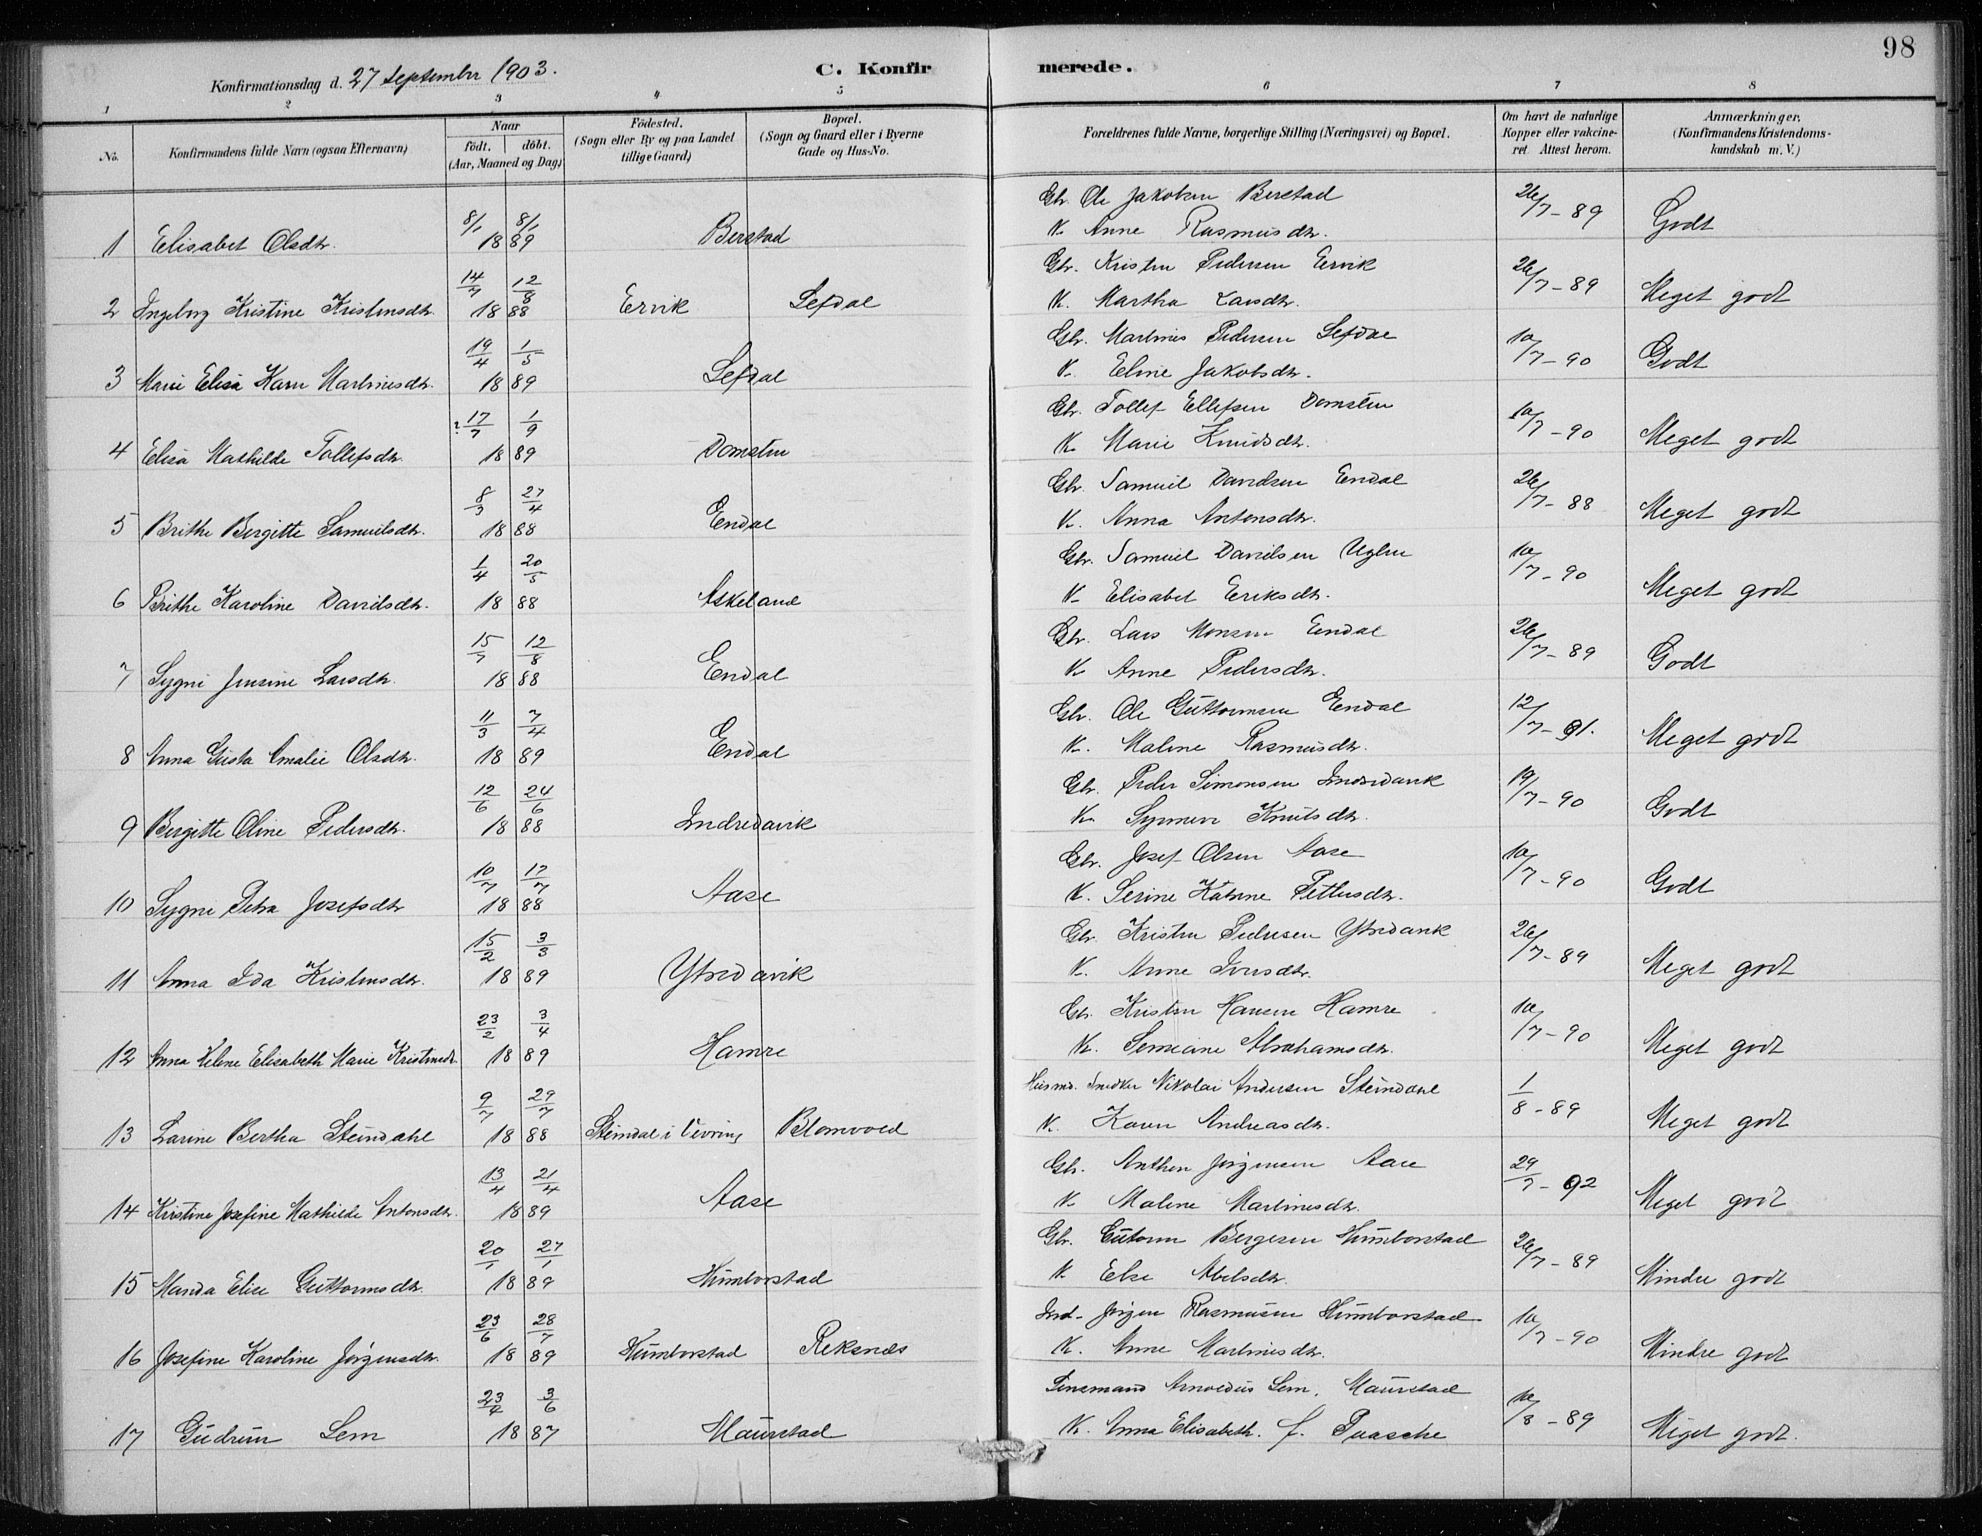 98
Konfirmationsdag d. 27 September 1903.
C. Konfirmerede.
1 2 3 4 5 6 7 8
No.
Konfirmandens fulde Navn (ogsaa Efternavn)
Naar
födt. döbt.
(Aar, Maaned og Dag)
Födested.
(Sogn eller By og paa Landet
tillige Gaard)
Bopæl.
(Sogn og Gaard eller i Byerne
Gade og Hus-No.
Forældrenes fulde Navne, borgerlige Stilling (Næringsvei) og Bopæl.
Om havt de naturlige
Kopper eller vakcine-
ret Attest herom.
Anmærkninger.
(Konfirmandens Kristendoms-
kundskab m. V.)
1 Elisabet Olsdtr. 8/1 8/1 1889 Berstad Gbr. Ole Jakobsen Berstad 26/7-89 Godt
K. Anne Rasmusdtr.
2 Ingeborg Kristine Kristensdtr. 14/7 12/8 1888 Ervik Lefdal Gbr. Kristen Pedersen Ervik 26/7-89 Meget godt
K. Martha Larsdtr.
3 Marie Elisa Karn Martinusdtr. 19/4 1/5 1889 Lefdal Gbr. Martinus Pedersen Lefdal 10/7-90 Godt
K. Eline Jakobsdtr.
4 Elisa Mathilde Tollefsdtr. ? 17/7 1/9 1889 Domsten Gbr. Tollef Ellefsen Domsten 10/7-90 Meget godt
K. Marie Knudsdtr.
5 Brithe Bergitte Samuelsdtr. 8/3 27/4 1888 Endal Gbr. Samuel Davidsen Endal 26/7-88 Meget godt
K. Anna Antonsdtr.
6 Brithe Karoline Davidsdtr. 1/4 20/5 1888 Askeland Gbr. Samuel Danielsen Uglen 10/7-90 Meget godt
K. Elisabet Eeriksdtr.
7 Sygni Jensine Larsdtr. 15/7 12/8 1888 Endal Gbr. Lars Monsen Eendal 26/7-89 Godt
K. Anne Pedersdtr.
8 Anna Gusta Amalie Olsdtr. 11/3 7/4 1889 Endal Gbr. Ole Guttormsen Eendal 12/7-91. Meget godt
K. Malene Rasmusdtr.
9 Bergitte Oline Pedersdtr. 12/6 24/6 1888 Indredavik Gbr. Peder Simonsen Indredavik 19/7-90 Godt
K. Synneve Knutsdtr.
10 Sygni Petra Josefsdtr 10/7 17/7 1888 Aase Gbr. Josef Olsen Aase 10/7-90 Godt
K. Serine Katrine Pettersdtr.
11 Anna Ida Kristensdtr. 15/2 3/3 1889 Ytredavik Gbr. Kristen Pedersen Ytredavik 26/7-89 Meget godt
K. Anne Iversdtr.
12 Anna Helene Elisabeth Marie Kristensdtr 23/2 3/4 1889 Hamre Gbr. Kristen Hansen Hamre 10/7-90 Meget godt
K. Semiane Abrahamsdtr.
13 Larine Bertha Steindahl 9/7 29/7 1888 Steindal i Vevring Blomvold Husmd. Snedker Nikolai Andersen Steindahl 1/8-89 Meget godt
K. Karen Andreasdtr.
14 Kristine Josefine Mathilde Antonsdtr. 13/4 21/4 1889 Aase Gbr. Anthon Jørgensen Aase 29/7-92 Meget godt
K. Malene Martinusdtr.
15 Manda Elise Guttormsdtr. 20/1 27/1 1889 Humborstad Gbr. Gutorm Bergesen Humborstad 26/7-89 Mindre godt
K. Else Abelsdtr.
16 Josefine Karoline Jørgensdtr. 23/6 28/7 1889 Humborstad Reksnes Ind. Jørgen Rasmusen Humborstad 10/7-90 Mindre godt
K. Anne Martinusdtr.
17 Gudrun Lem 23/4 3/6 1887 Maurstad Lensmand Arnoldus Lem, Maurstad 10/8-89 Meget godt.
K. Anna Elisabeth. f. Paasche